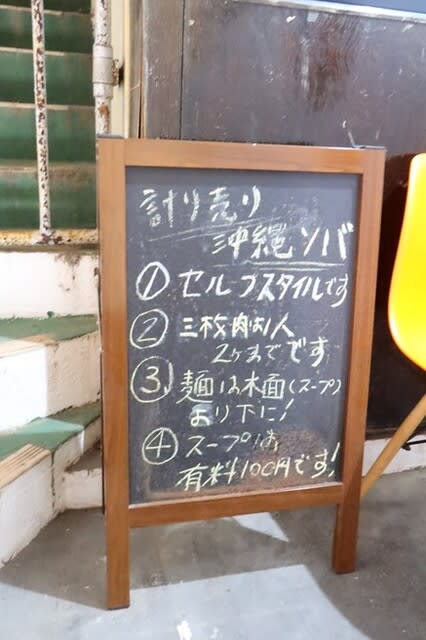 計り売り
沖縄ソバ
① セルフスタイルです
② 三枚肉お1人
2ヶまでです
③ 麺は水面(スープ)
より下に!
④ スープは
有料100円です!